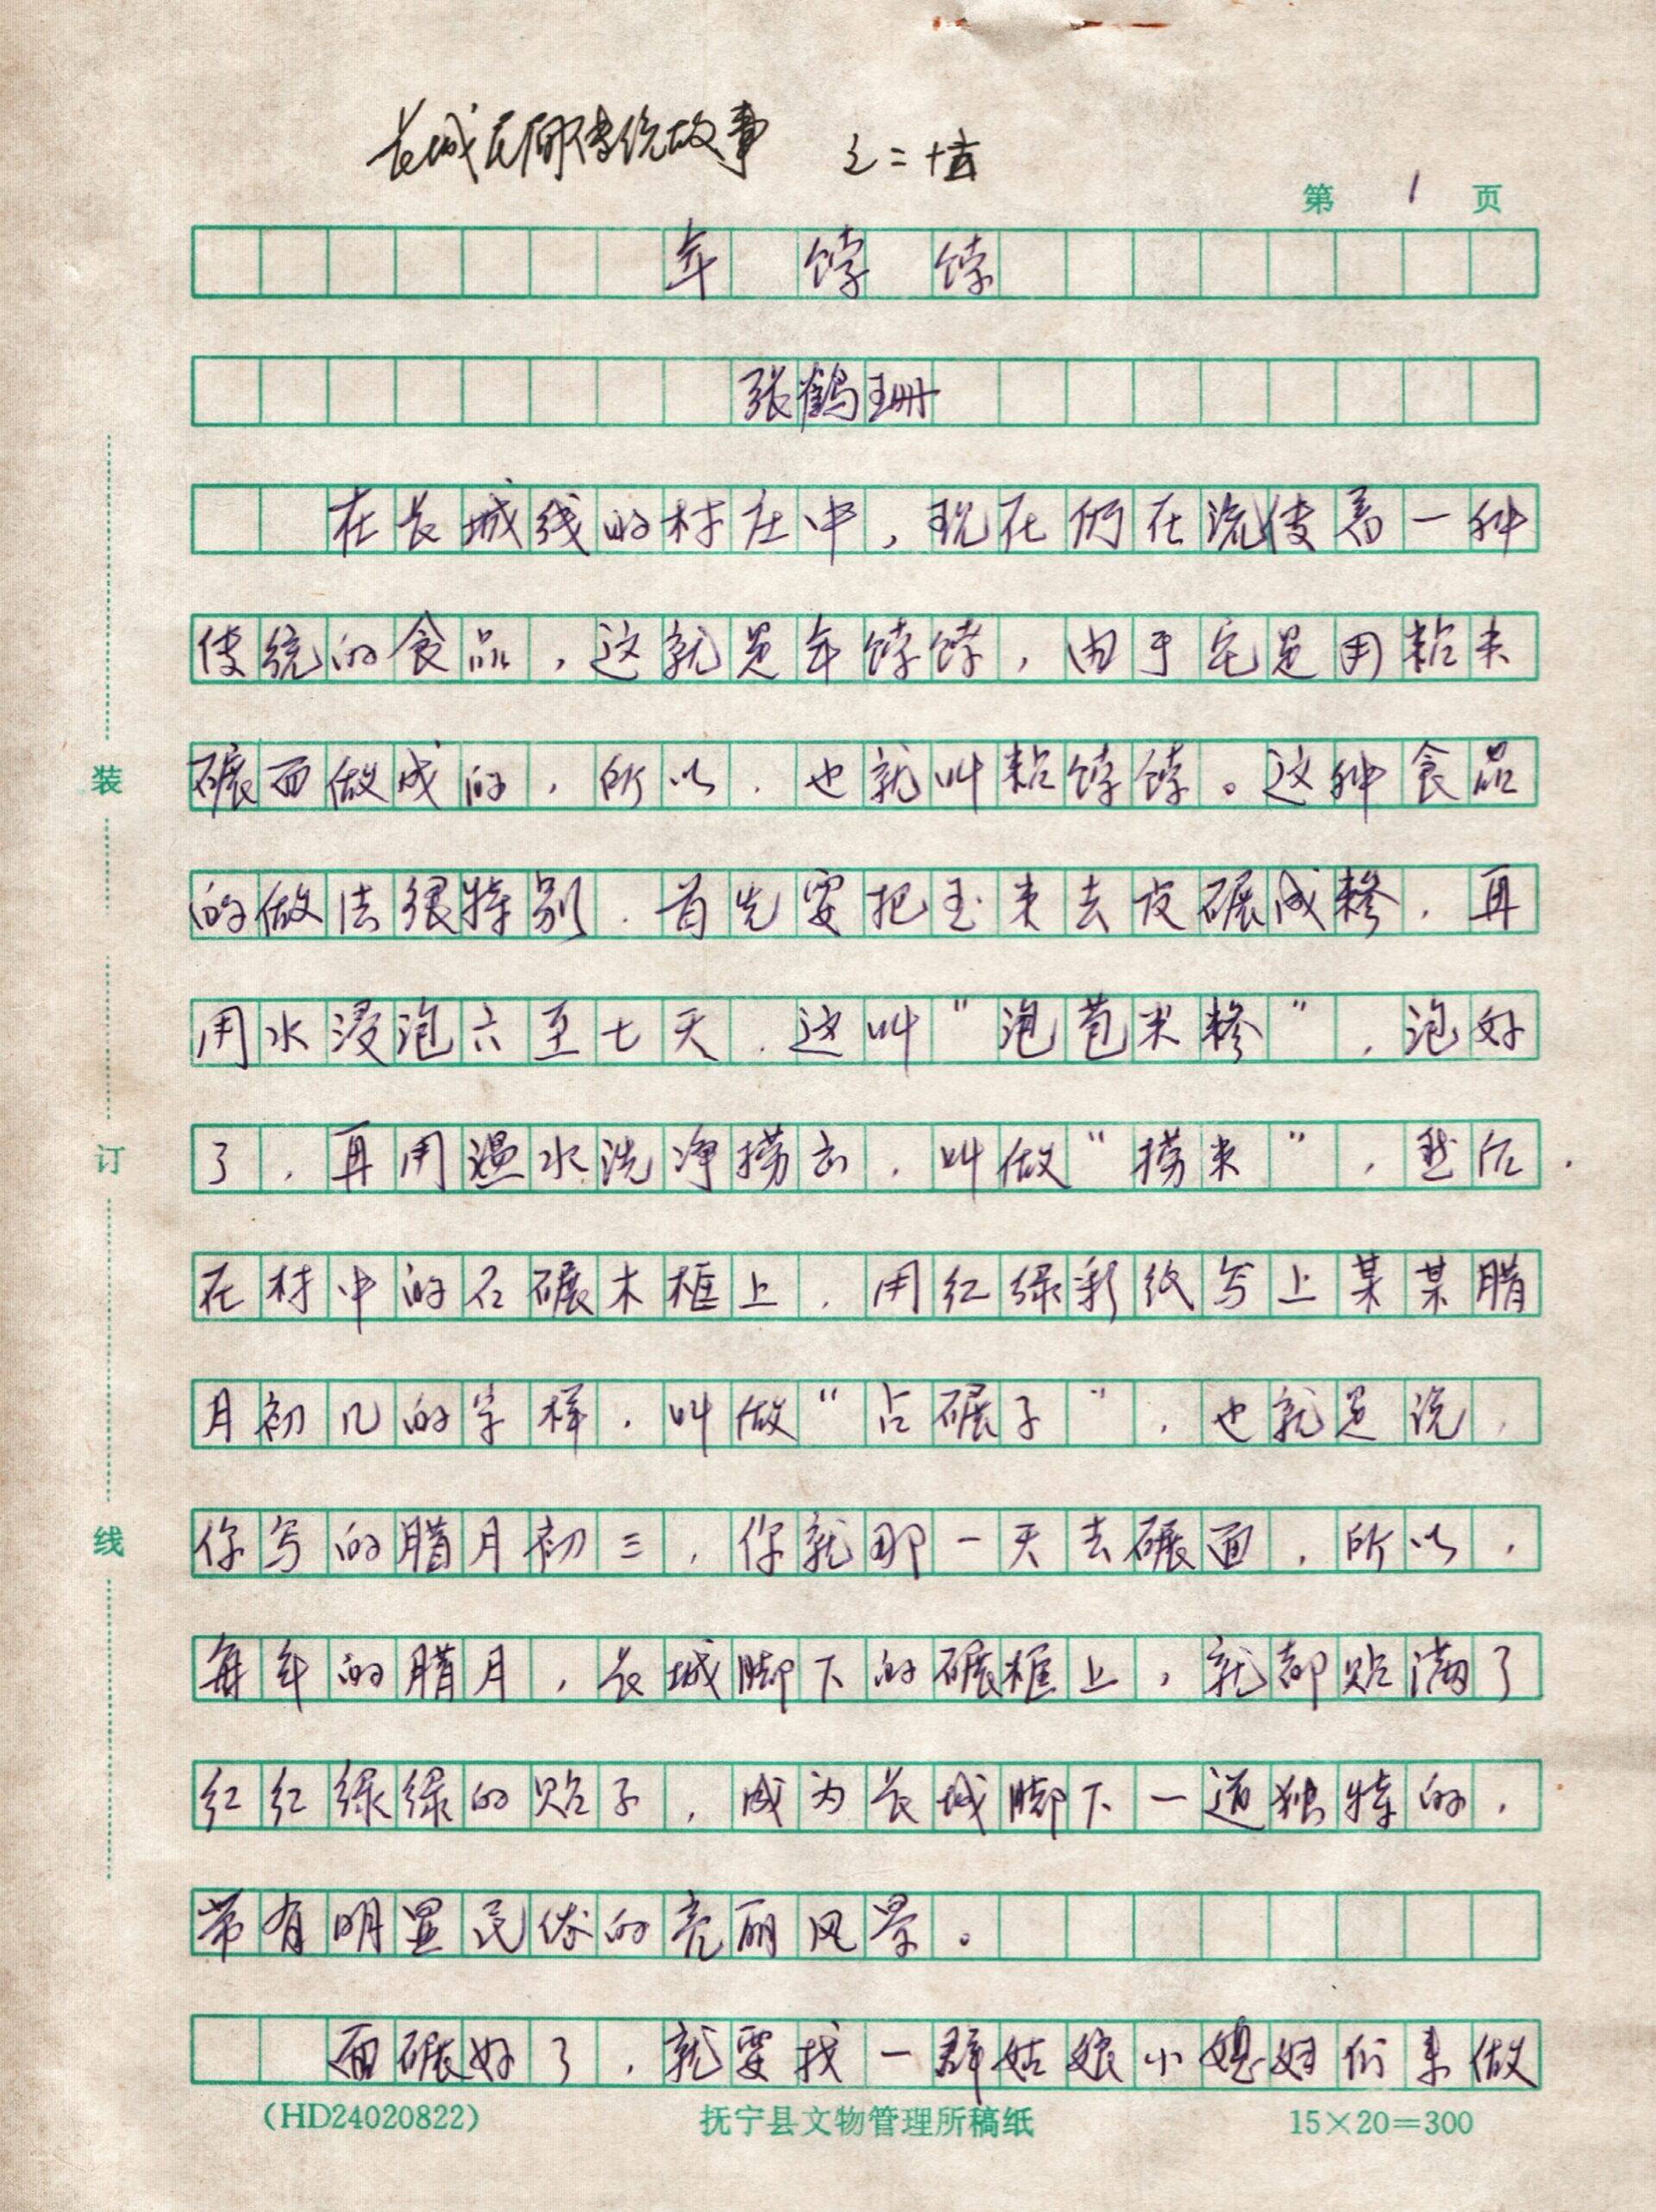 长城民间传说故事 之二十五
第 1 页
年 饽 饽
张鹤珊
在长城线的村庄中，现在仍在流传着一种
传统的食品，这就是年饽饽，由于它是用粘米
碾面做成的，所以，也就叫粘饽饽。这种食品
的做法很特别，首先要把玉米去皮碾成糁，再
用水浸泡六至七天，这叫“泡苞米糁”，泡好
了，再用温水洗净捞出，叫做“捞米”，然后
在村中的石碾木框上，用红绿彩纸写上某某腊
月初几的字样，叫做“占碾子”，也就是说，
你写的腊月初三，你就那一天去碾面，所以，
每年的腊月，长城脚下的碾框上，就都贴满了
红红绿绿的贴子，成为长城脚下一道独特的，
带有明显民俗的亮丽风景。
面碾好了，就要找一群姑娘小媳妇们来做
装
订
线
(HD24020822) 抚宁县文物管理所稿纸 15×20=300